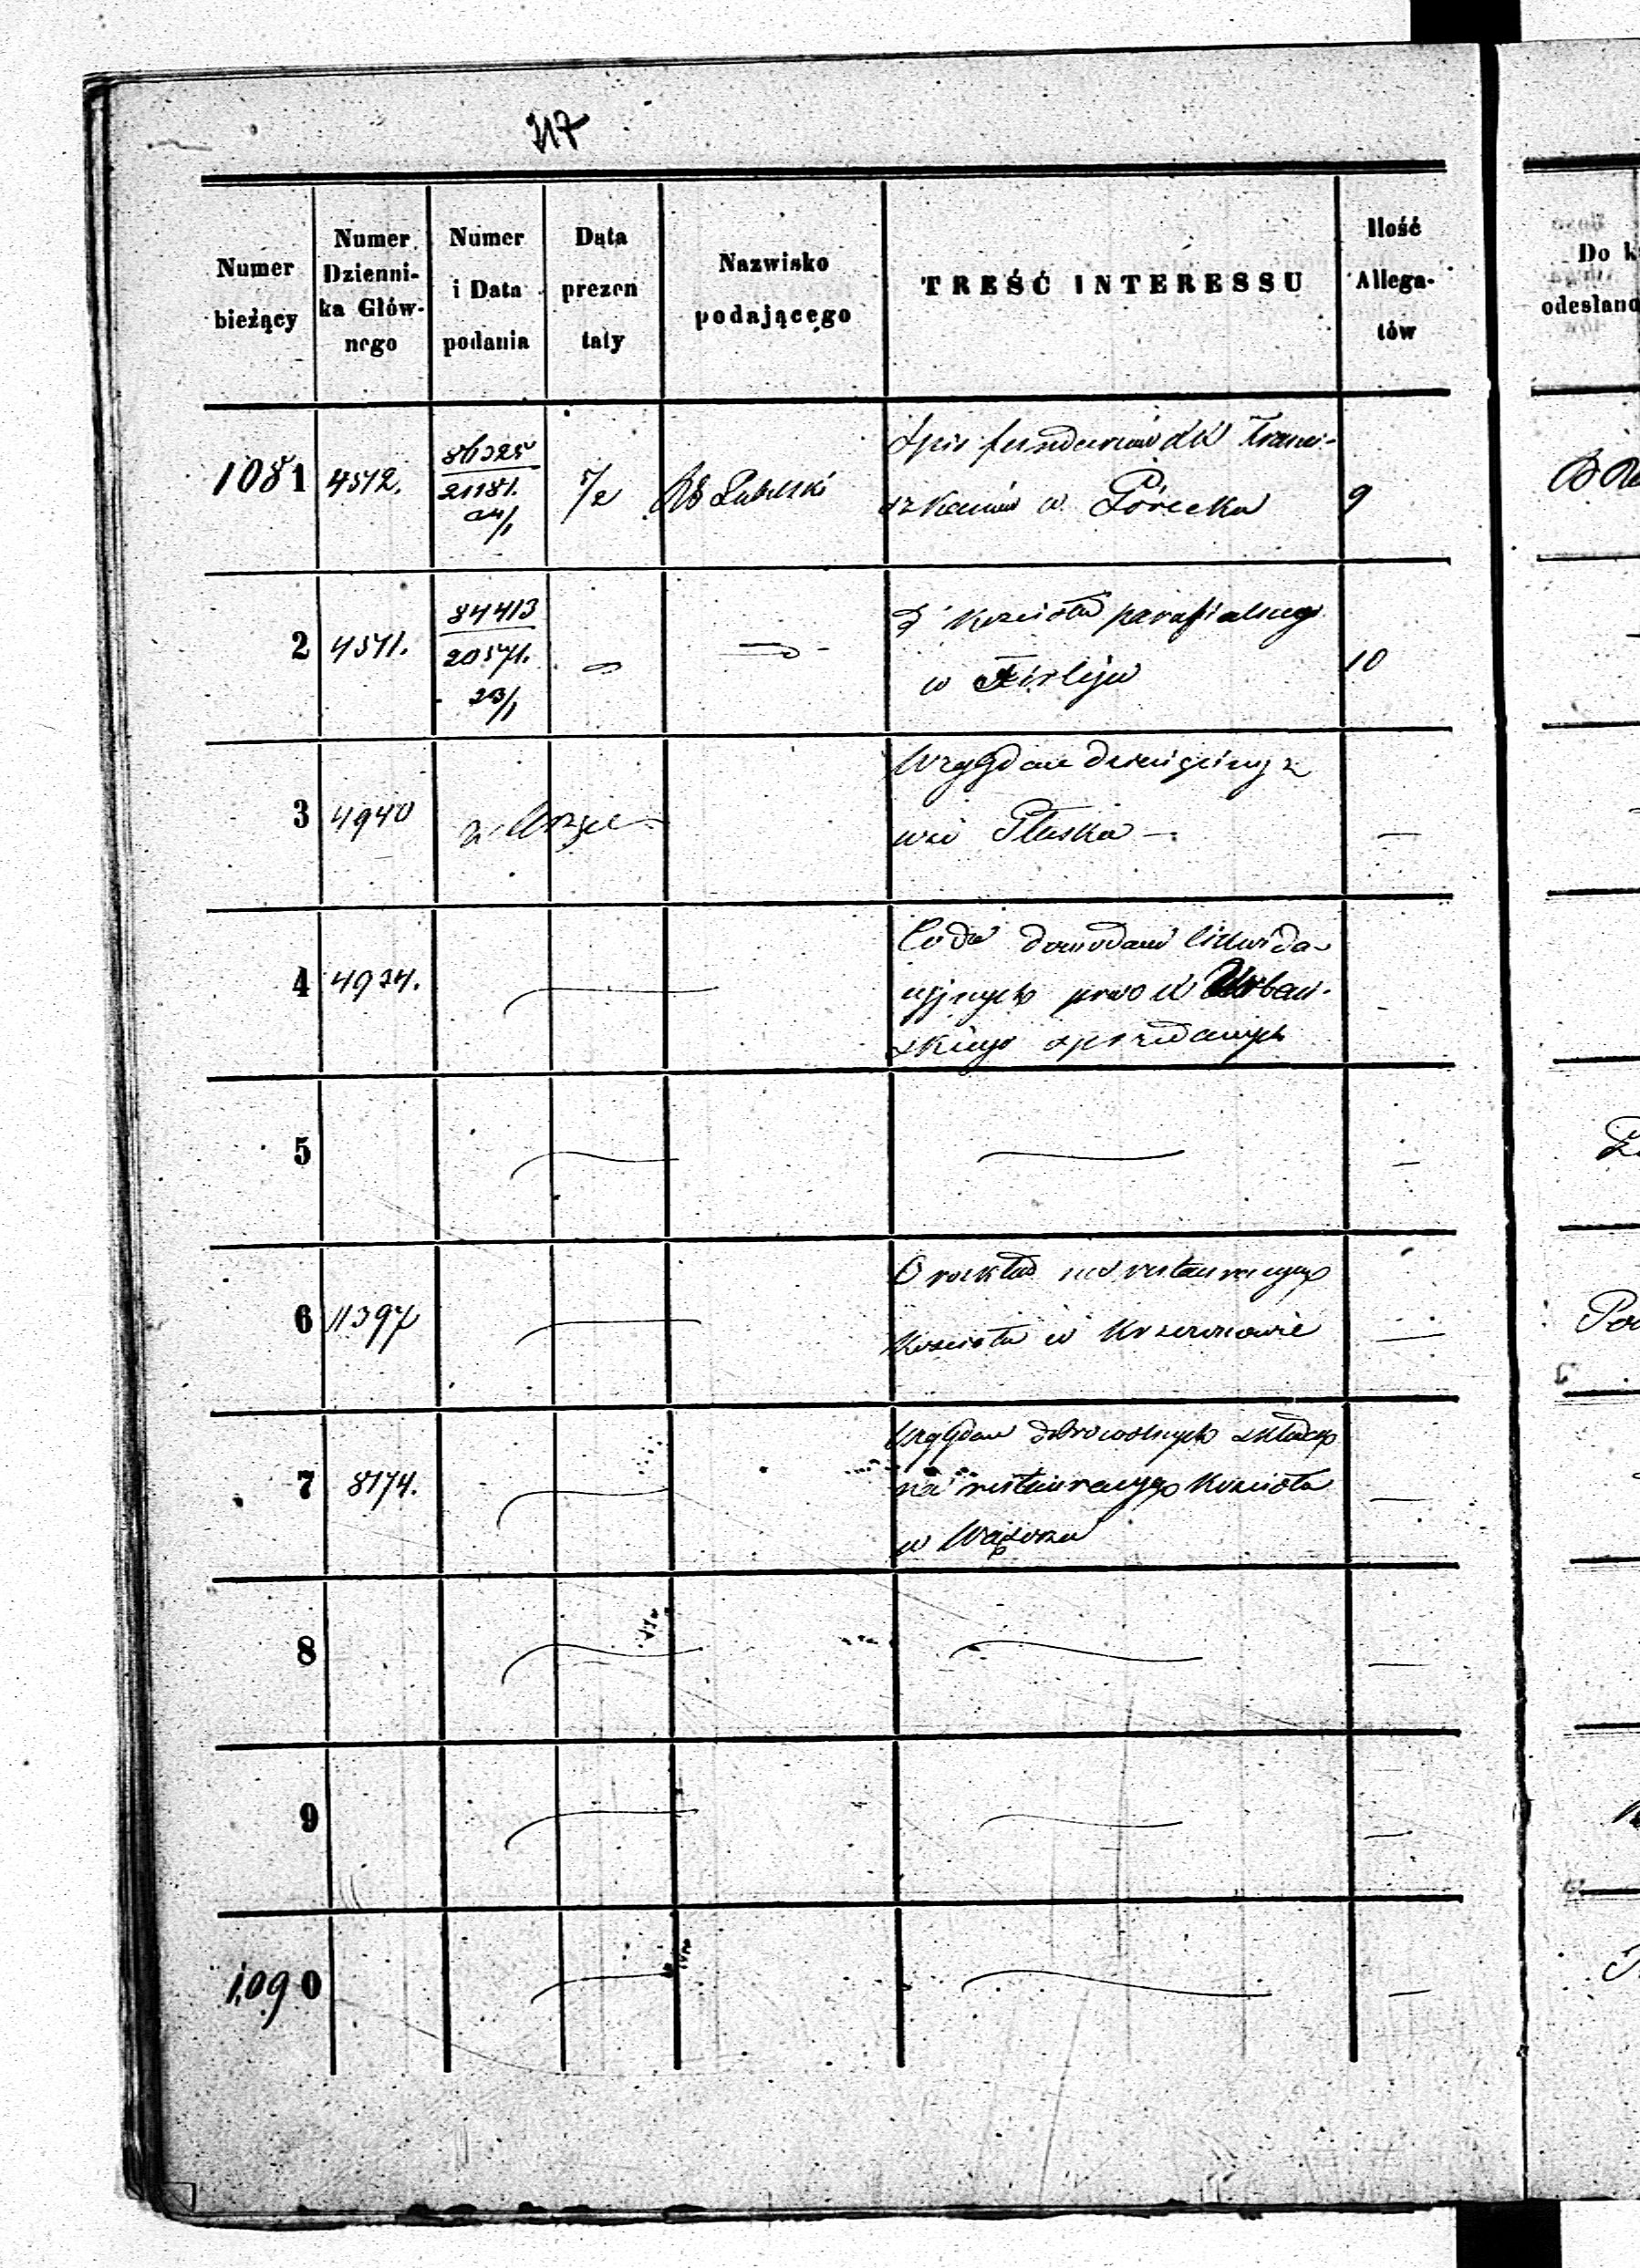 217
Numer bieżący
Numer Dzienni-ka Głów-nego
Numer i Data podania
Data prezen taty
Nazwisko podającego
TREŚĆ INTERESSU
Ilość Allega-tów
Do k
odesłano
1081 4512. 86325 / 21181. 24/1 7/2 RG Lubelski
Spis funduszów XX Franci-
szkanów w Górecku 9
2 4511. 84413 / 20571. 23/1
kościoła parafialnego
w Firleju 10
3 4940
Względem dziesięciny z
wsi Pluska —
4 4924.
Co do dowodów likwida-
cyjnych przez X Urbań-
skiego
5
6 11397
O rozkład na restauracyą
Kościoła w
7 8174.
Względem dobrowolnych składek
na restauracyą Kościoła
w Wąsoszu
8
9
1090